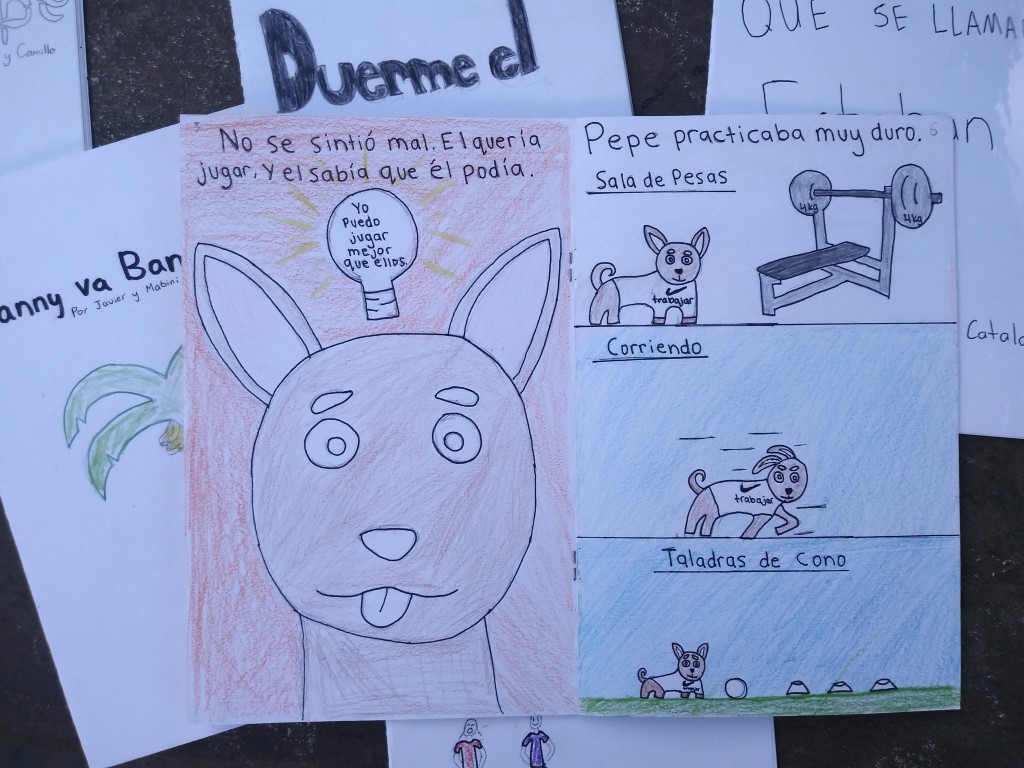 y Camillo
Duerme el
QUE SE LLAMA
anny va Ban
Por Javier y Mabini
Catalo
5
No se sintió mal. El quería
jugar, Y el sabía que él podía.
Yo
Puedo
jugar
mejor
que ellos.
Pepe practicaba muy duro. 6
Sala de Pesas
4kg
4kg
trabajar
Corriendo
trabajar
Taladras de Cono
trabajar